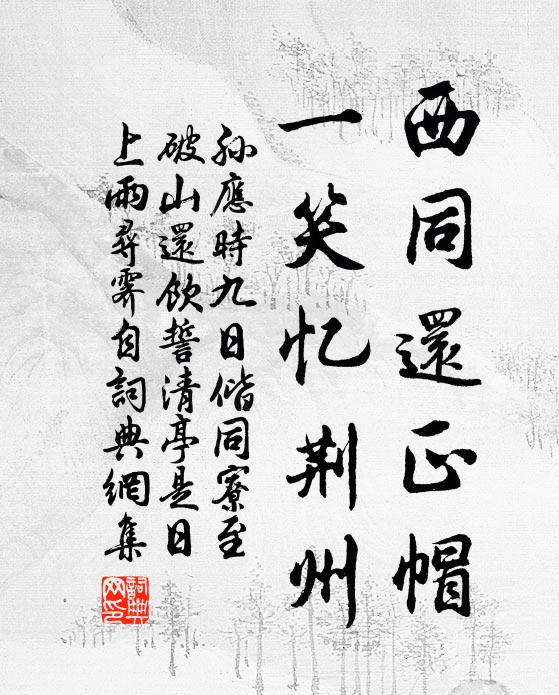 西同還正帽
一笑忆荆州
孙應時九日偕同寮至
破山還飲誓清亭是日
上雨尋霽自詞典網集
詞典
网印